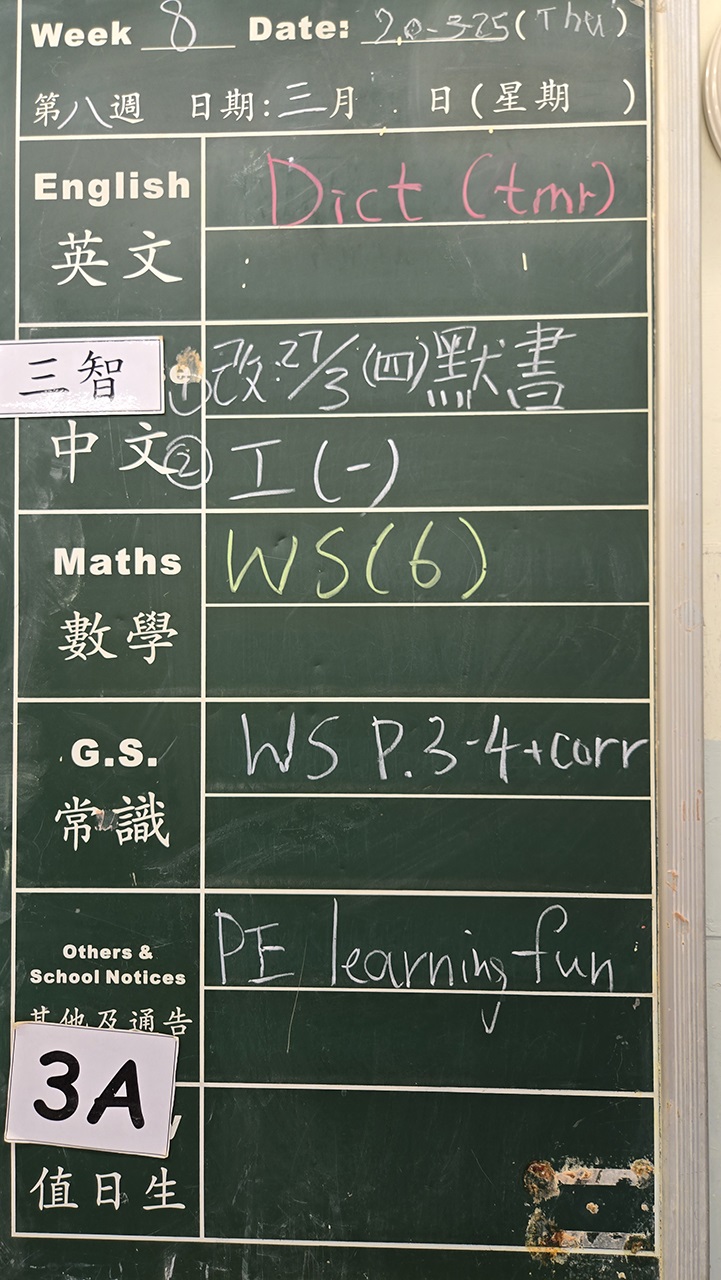 Week 8 Date: 20-3-25 (Thu)
第八週 日期:三月 日(星期 )
English Dict (tmr)
英文
三智
① 改:27/3(四)默書
中文 ② 工(一)
Maths WS(6)
數學
G.S. WS P.3-4+corr
常識
Others & School Notices PE learning fun
其他及通告
3A
值日生